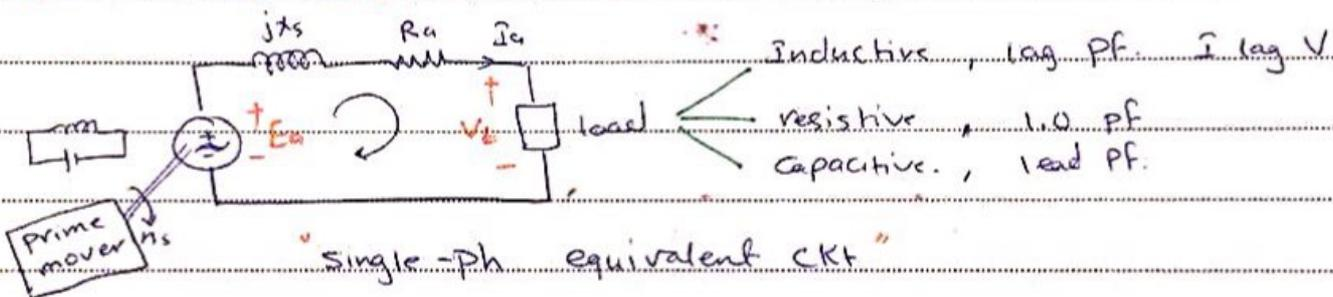 jXs Ra Ia
Inductive, lag pf. I lag V
+ Ea -
+ Vt -
load
resistive, 1.0 pf
Capacitive., lead pf.
prime mover
ns
"Single-ph equivalent CKt"